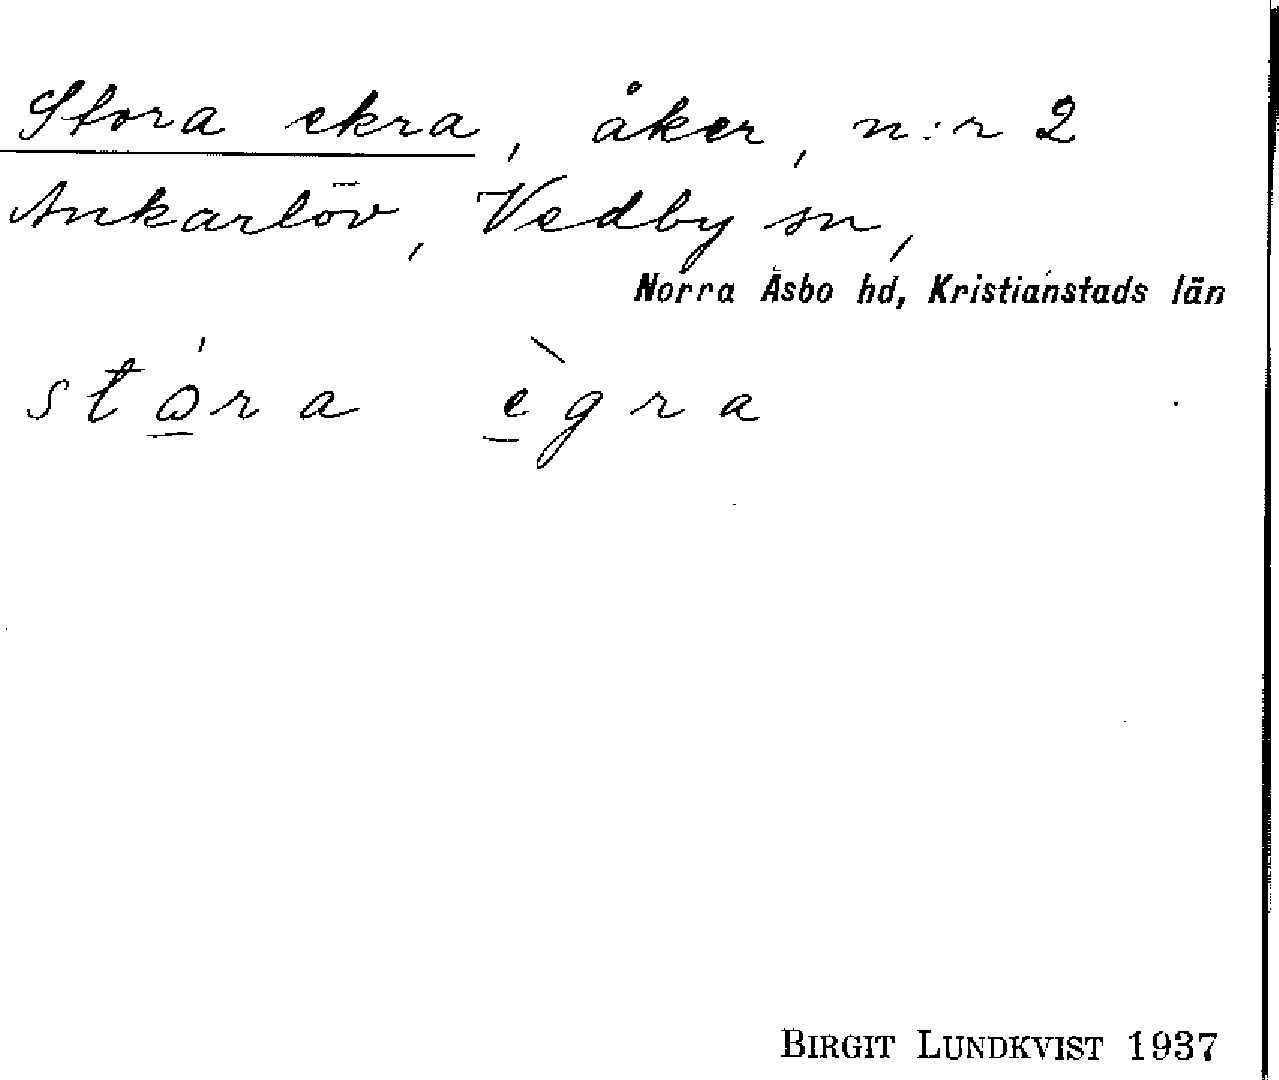 Stora ekra, åker, n:r 2
Ankarlöv, Vedby sn,
Norra Åsbo hd, Kristianstads län
stó̲ra è̲gra
BIRGIT LUNDKVIST 1937